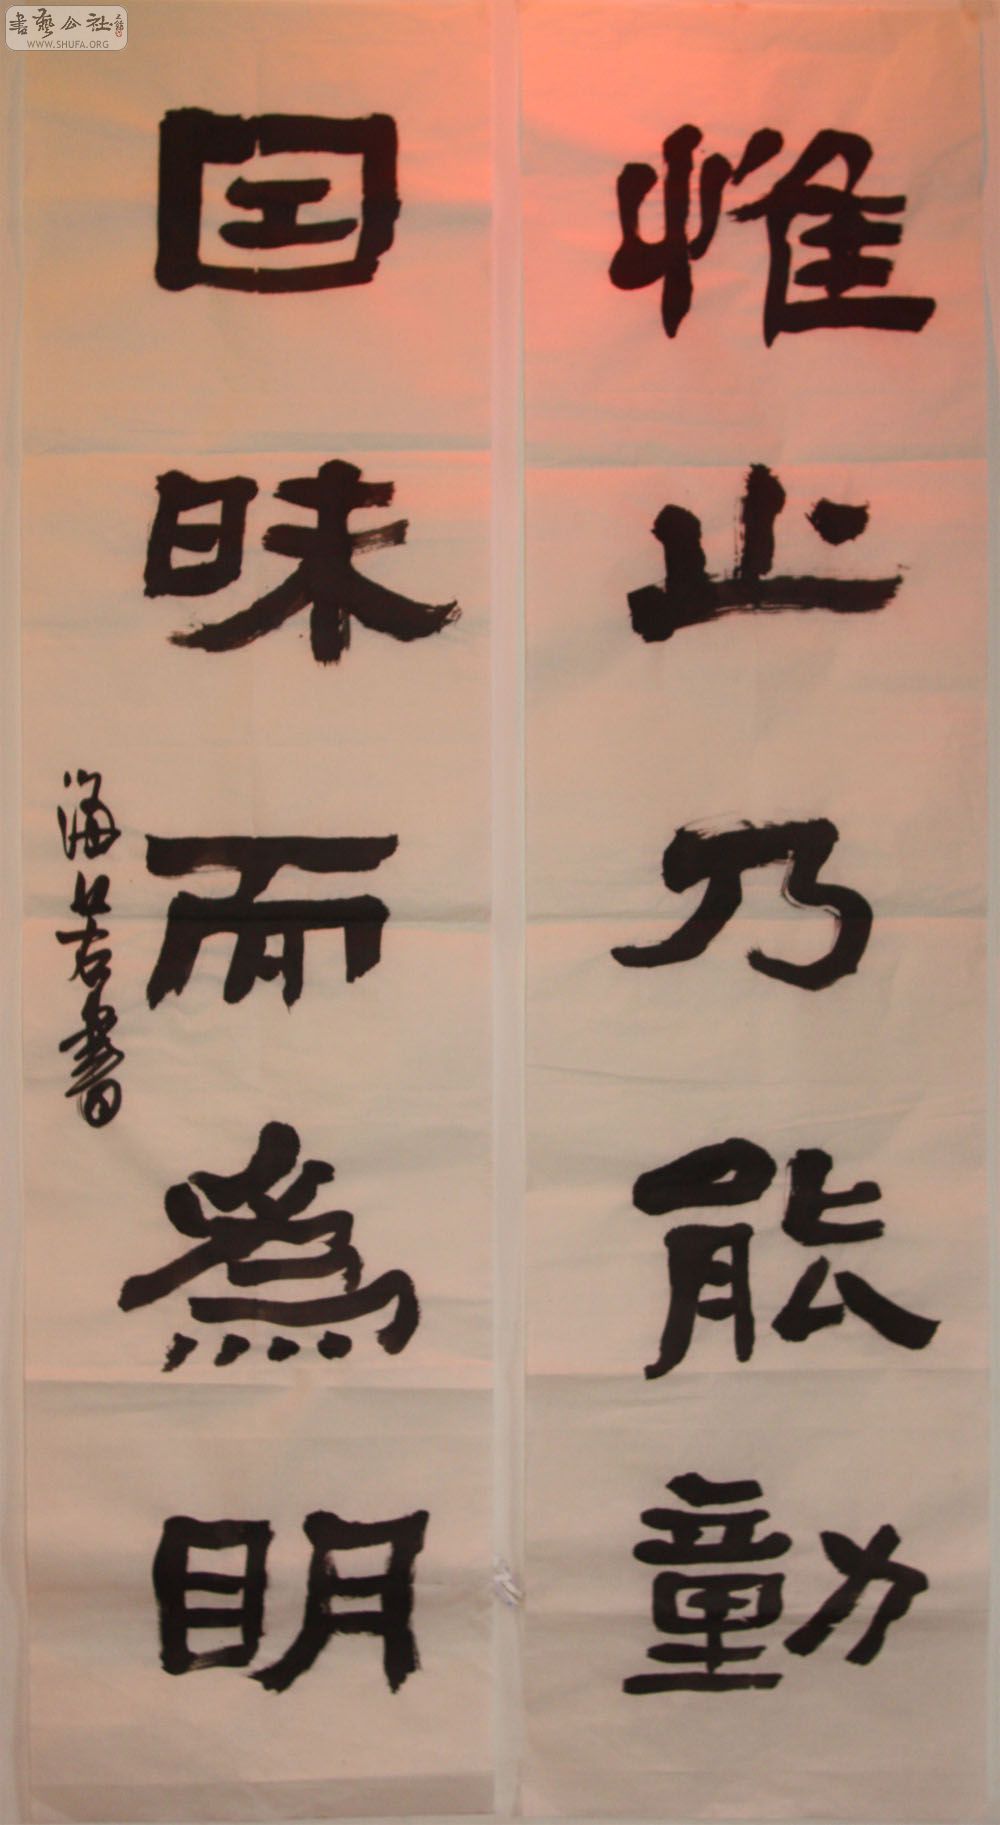 惟止乃能動
因昧而為明
海若書
書藝公社
WWW.SHUFA.ORG